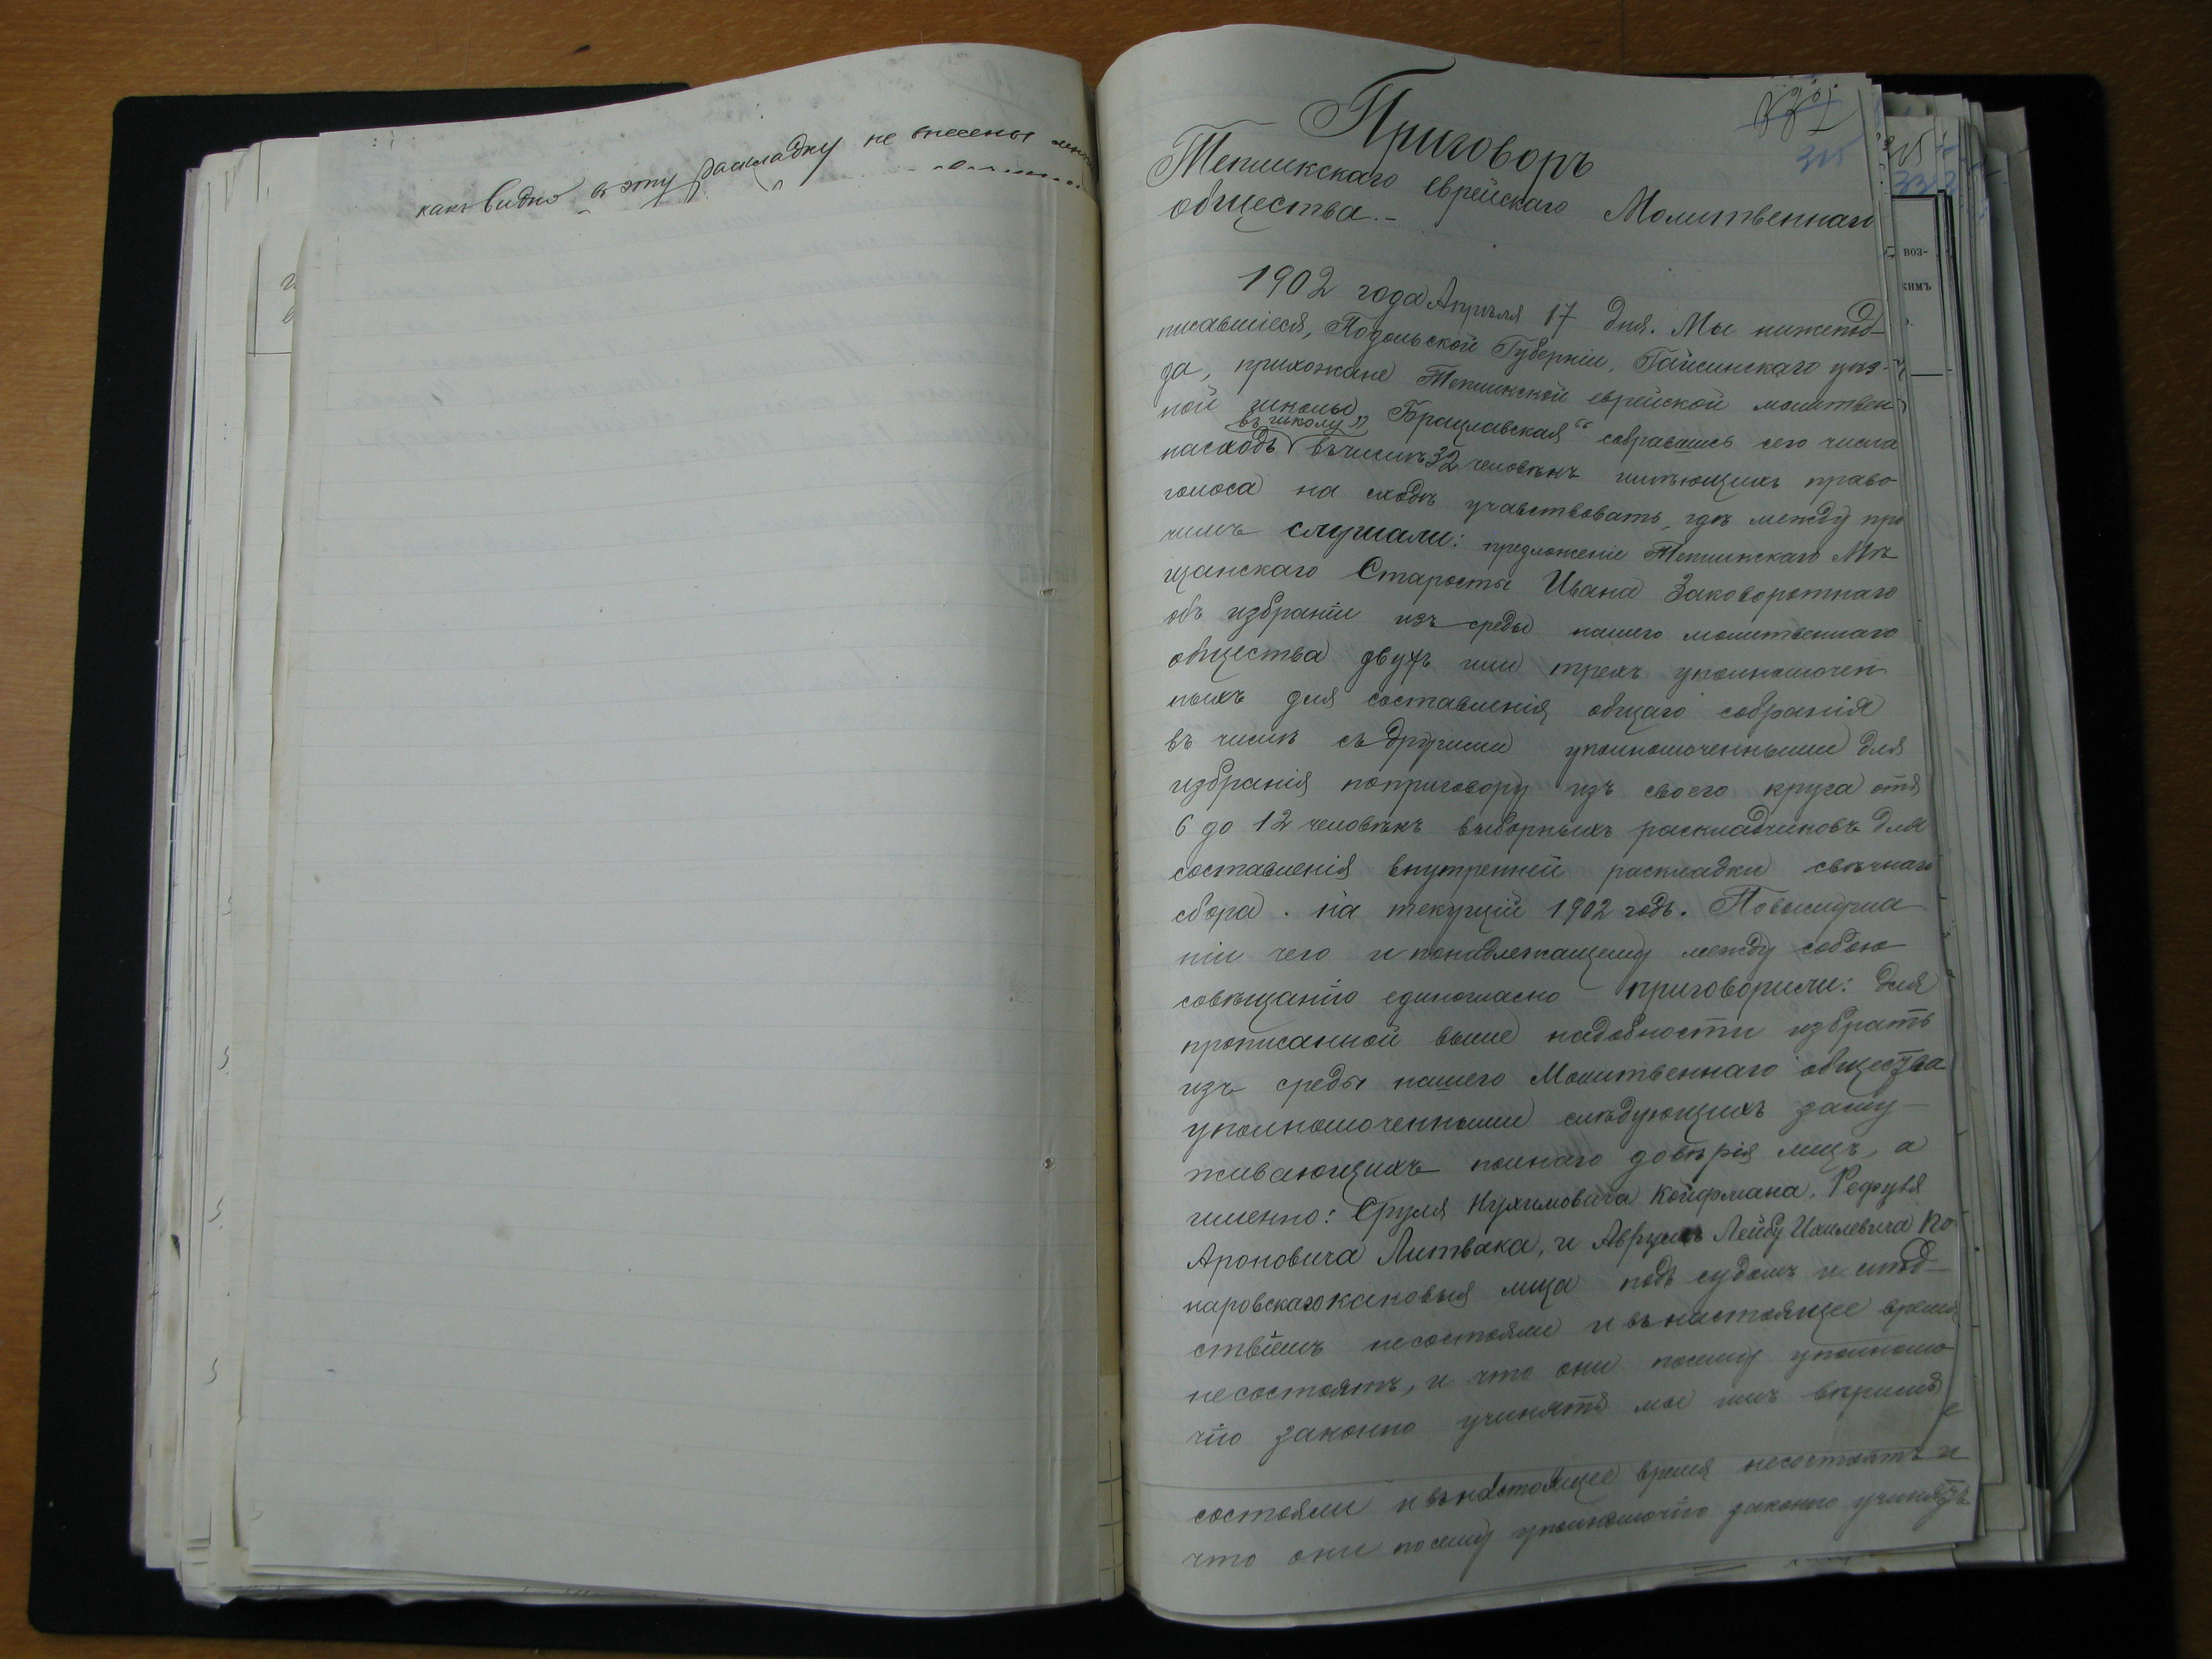 какъ видно въ эту раскладку не внесены
Приговоръ
Тепликскаго еврейскаго Молитвеннаго
общества.-
315
1902 года Апрѣля 17 дня. Мы нижепод-
писавшіеся, Подольской Губерніи, Гайсинскаго уѣз-
да, прихожане Тепликской еврейской молитвен
ной школы „Брацлавская“ собравшись сего числа
въ школу
насходъ въ числѣ 32 человѣкъ имѣющихъ право
голоса на сходѣ учавствовать, гдѣ между про
чимъ слушали: предложеніе Тепликскаго Мѣ
щанскаго Старосты Ивана Заковоротнаго
объ избраніи изъ среды нашего молитвеннаго
общества двухъ или трехъ уполномочен
ныхъ для составленія общаго собранія
въ числѣ съ другими уполномоченными для
избранія поприговору изъ своего круга отъ
6 до 12 человѣкъ выборныхъ раскладчиковъ для
составленія внутренней раскладки свѣчнаго
сбора. на текущій 1902 годъ. Повыслуша
ніи чего и понадлежащему между собою
совѣщанію единогласно приговорили: для
прописанной выше надобности избрать
изъ среды нашего Молитвеннаго общества
уполномоченными слѣдующихъ заслу-
живающихъ полнаго довѣрія лицъ, а
именно: Сруля Нухимовича Койфмана, Рефуля
Ароновича Литвака, и Аврумъ Лейбу Ихилевича По
наровскаго каковыя лица подъ судомъ и слѣд-
ствіемъ несостояли и внастоящее время
несостоятъ, и что они посему уполномо
чію законно учинятъ мы имъ вѣримъ
состояли и внастоящее время несостоятъ и
что они посему уполномочію законно учинятъ